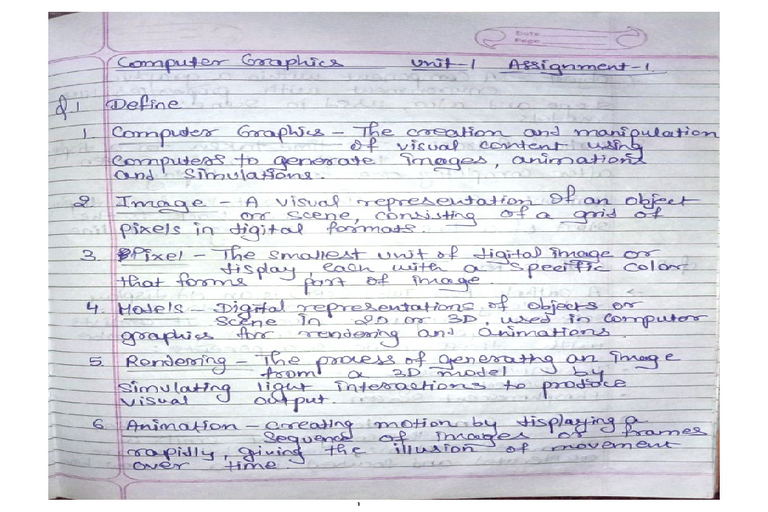 Date
Page
Computer Graphics Unit-1 Assignment-1.
Q.1 Define
1 Computer Graphics - The creation and manipulation
of visual content using
computers to generate images, animations
and simulations.
2 Image - A visual representation of an object
or scene, consisting of a grid of
pixels in digital formats.
3. Pixel - The smallest unit of digital image or
display, each with a specific color
that forms part of image.
4. Models - Digital representations of objects or
scene in 2D or 3D, used in computer
graphics for rendering and animations.
5. Rendering - The process of generating an image
from a 3D model by
simulating light interactions to produce
visual output.
6 Animation - creating motion by displaying a
sequence of images or frames
rapidly, giving the illusion of movement
over time.